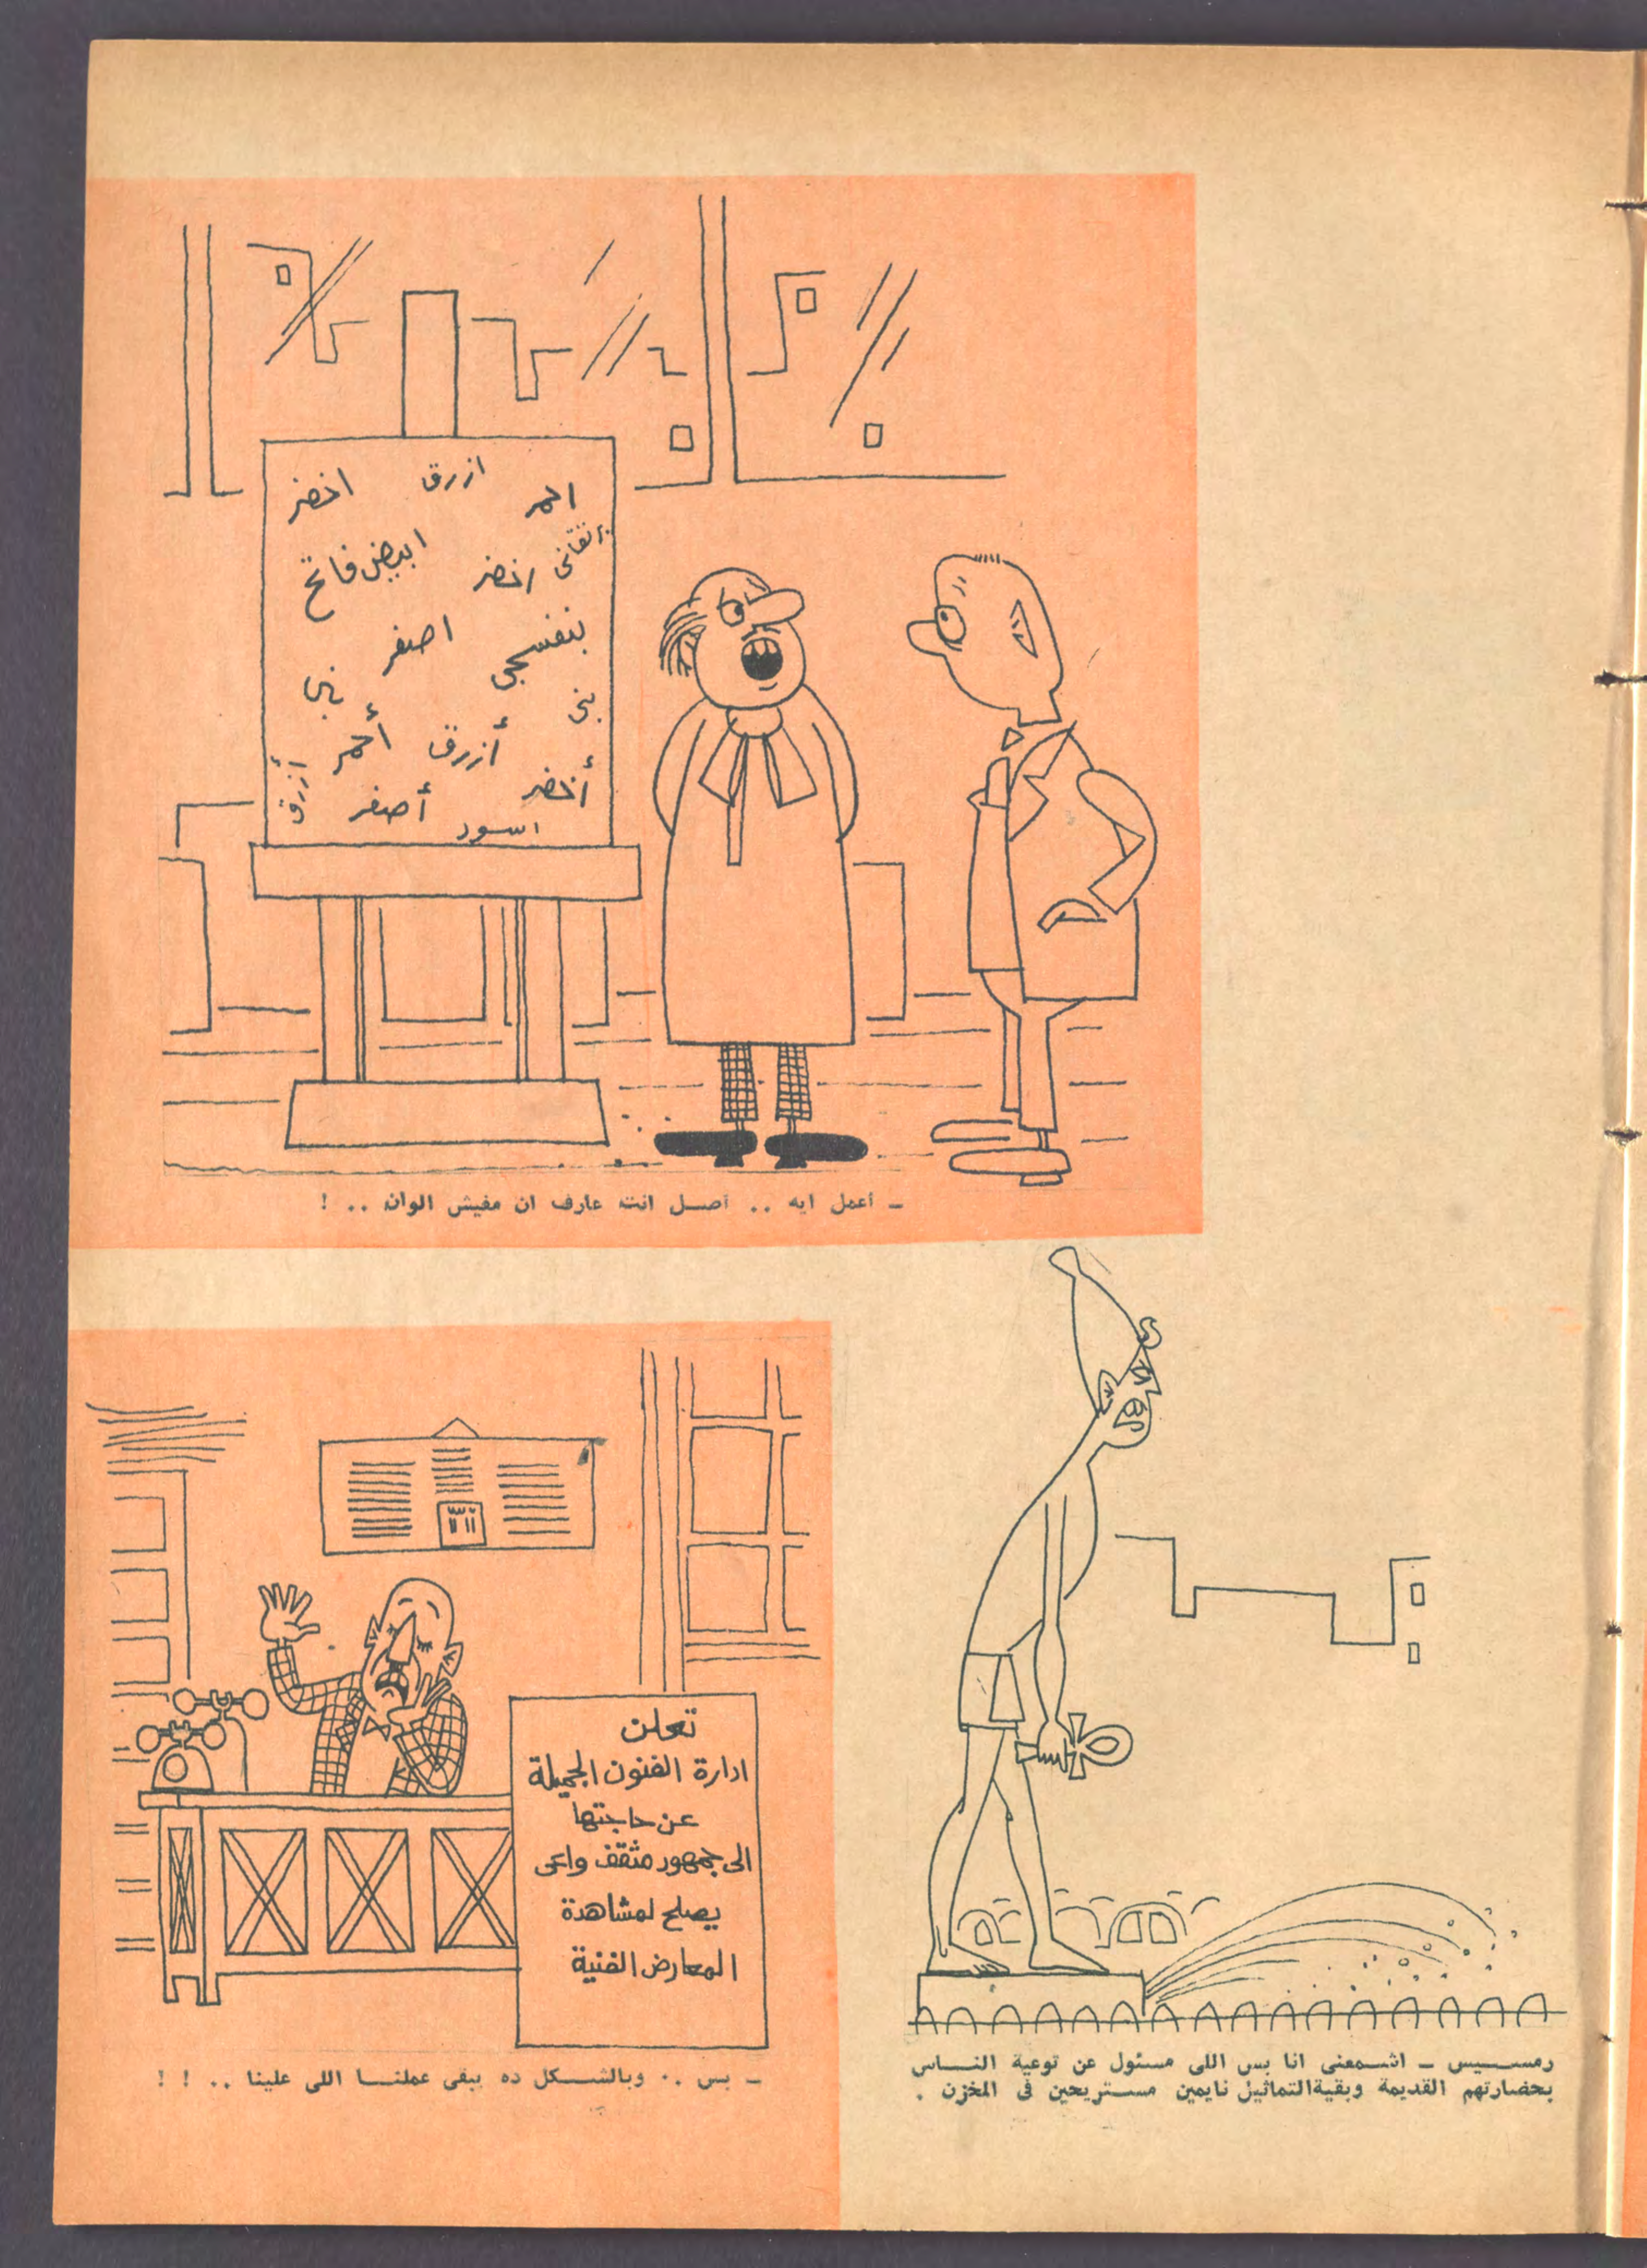 احمر
ازرق
اخضر
برتقانى
اخضر
ابيض فاتح
بنفسجى
اصفر
بنى
بنى
أزرق
أحمر
أخضر
أصفر
أزرق
اسود
ـ أعمل ايه .. أصل انت عارف ان مفيش الوان .. !
تعلن
ادارة الفنون الجميلة
عن حاجتها
الى جمهور مثقف واعى
يصلح لمشاهدة
المعارض الفنية
ـ بس .. وبالشكل ده يبقى عملنا اللى علينا .. ! !
رمسيس ـ اشمعنى انا بس اللى مسئول عن توعية الناس
بحضارتهم القديمة وبقية التماثيل نايمين مستريحين فى المخزن .